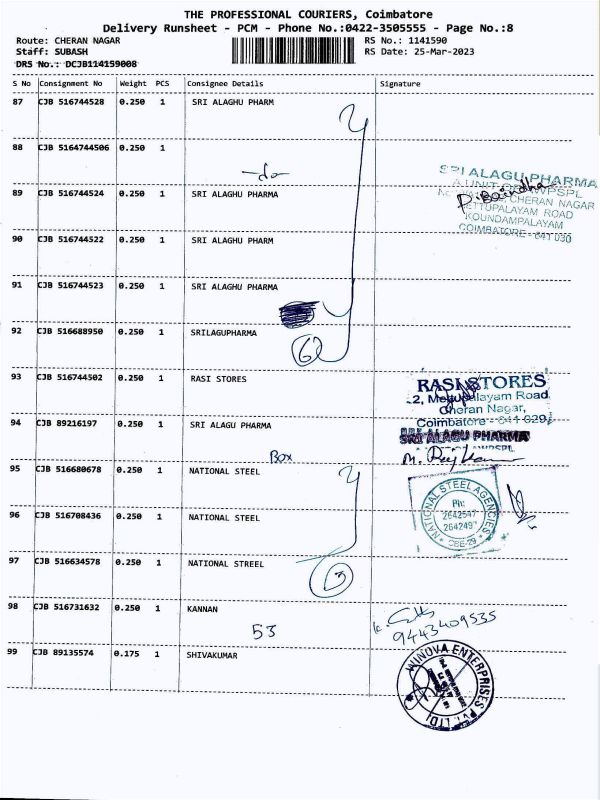 THE PROFESSIONAL COURIERS, Coimbatore
Delivery Runsheet - PCM - Phone No.:0422-3505555 - Page No.:8
Route: CHERAN NAGAR RS No.: 1141590
Staff: SUBASH RS Date: 25-Mar-2023
DRS No.: DCJB114159008
S No Consignment No Weight PCS Consignee Details Signature
87 CJB 516744528 0.250 1 SRI ALAGHU PHARM
88 CJB 5164744506 0.250 1
-do-
SRI ALAGU PHARMA
89 CJB 516744524 0.250 1 SRI ALAGHU PHARMA
CHERAN NAGAR
METTUPALAYAM ROAD
KOUNDAMPALAYAM
COIMBATORE - 641 030
90 CJB 516744522 0.250 1 SRI ALAGHU PHARM
91 CJB 516744523 0.250 1 SRI ALAGHU PHARMA
92 CJB 516688950 0.250 1 SRILAGUPHARMA
6
93 CJB 516744502 0.250 1 RASI STORES
RASI STORES
2, Mettupalayam Road
Cheran Nagar,
Coimbatore - 641 029
94 CJB 89216197 0.250 1 SRI ALAGU PHARMA
SRI ALAGU PHARMA
BOX
95 CJB 516680678 0.250 1 NATIONAL STEEL
NATIONAL STEEL AGENCIES
Ph:
2642547
264249
CBE-29
96 CJB 516708436 0.250 1 NATIONAL STEEL
97 CJB 516634578 0.250 1 NATIONAL STREEL
3
98 CJB 516731632 0.250 1 KANNAN
53
9443409535
99 CJB 89135574 0.175 1 SHIVAKUMAR
WINOVA ENTERPRISES PVT LTD